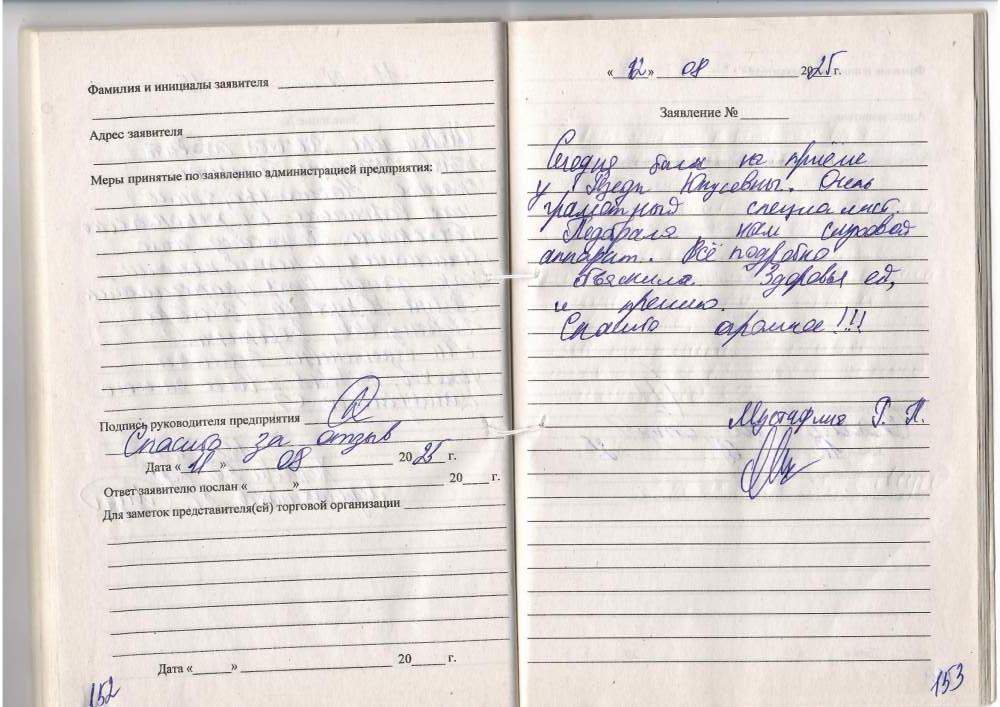 Фамилия и инициалы заявителя
Адрес заявителя
Меры принятые по заявлению администрацией предприятия:
Подпись руководителя предприятия
Спасибо за отзыв
Дата « 11 » 08 2025 г.
Ответ заявителю послан « » 20 г.
Для заметок представителя(ей) торговой организации
Дата « » 20 г.
152
« 12 » 08 2025 г.
Заявление №
Сегодня были на приёме
у Юнусовны. Очень
грамотный специалист.
Подобрала нам слуховой
аппарат. Всё подробно
объяснила. Здоровья ей,
и премию.
Спасибо огромное!!!
Мустафина Г. Н.
153